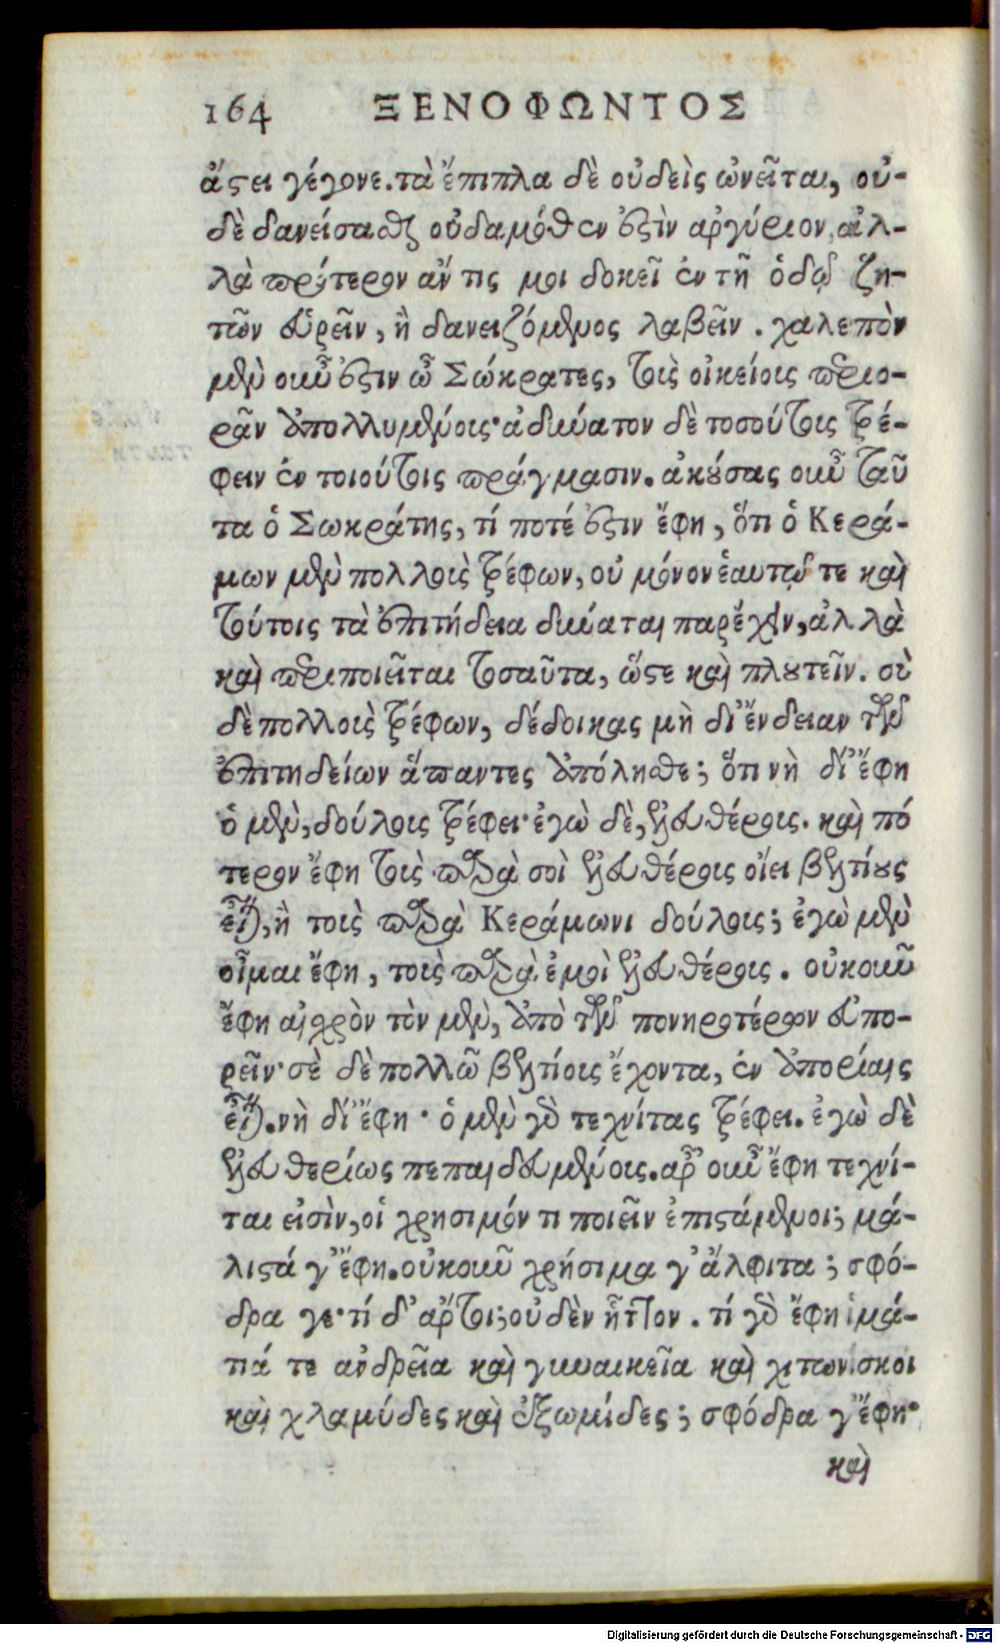 164 ΞΕΝΟΦΩΝΤΟΣ
ἄϛει γέγονε. τὰ ἔπιπλα δὲ οὐδεὶς ὠνεῖται, οὐ-
δὲ δανείσασθαι οὐδαμόθεν ἐϛὶν ἀργύριον, ἀλ-
λὰ πρότερον ἄν τις μοι δοκεῖ ἐν τῇ ὁδῷ ζη-
τῶν εὑρεῖν, ἢ δανειζόμενος λαβεῖν. χαλεπὸν
μὲν οὖν ἐϛιν ὦ Σώκρατες, τοὺς οἰκείους περιο-
ρᾶν ἀπολλυμένους· ἀδύνατον δὲ τοσούτους τρέ-
φειν ἐν τοιούτοις πράγμασιν. ἀκούσας οὖν ταῦ
τα ὁ Σωκράτης, τί ποτέ ἐϛιν ἔφη, ὅτι ὁ Κερά-
μων μὲν πολλοὺς τρέφων, οὐ μόνον ἑαυτῷ τε καὶ
τούτοις τὰ ἐπιτήδεια δύναται παρέχειν, ἀλλὰ
καὶ περιποιεῖται τοσαῦτα, ὥϛε καὶ πλουτεῖν. σὺ
δὲ πολλοὺς τρέφων, δέδοικας μὴ δι' ἔνδειαν τῶν
ἐπιτηδείων ἅπαντες ἀπόλησθε; ὅτι νὴ δί' ἔφη
ὁ μὲν, δούλους τρέφει· ἐγὼ δὲ, ἐλευθέρους. καὶ πό
τερον ἔφη τοὺς παρὰ σοὶ ἐλευθέρους οἴει βελτίους
εἶναι, ἢ τοὺς παρὰ Κεράμωνι δούλους; ἐγὼ μὲν
οἶμαι ἔφη, τοὺς παρὰ ἐμοὶ ἐλευθέρους. οὐκοῦν
ἔφη αἰσχρὸν τὸν μὲν, ἀπὸ τῶν πονηροτέρων εὐπο-
ρεῖν· σὲ δὲ πολλῷ βελτίους ἔχοντα, ἐν ἀπορίαις
εἶναι. νὴ δί' ἔφη· ὁ μὲν γὰρ τεχνίτας τρέφει. ἐγὼ δὲ
ἐλευθερίως πεπαιδευμένους. ἆρ' οὖν ἔφη τεχνί-
ται εἰσὶν, οἱ χρησιμόν τι ποιεῖν ἐπιϛάμενοι; μά-
λιϛά γ' ἔφη. οὐκοῦν χρήσιμα γ' ἄλφιτα; σφό-
δρα γε· τί δ' ἄρτοι; οὐδὲν ἧττον. τί γὰρ ἔφη ἱμά-
τιά τε ἀνδρεῖα καὶ γυναικεῖα καὶ χιτωνίσκοι
καὶ χλαμύδες καὶ ἐξωμίδες; σφόδρα γ' ἔφη·
καὶ
Digitalisierung gefördert durch die Deutsche Forschungsgemeinschaft - DFG